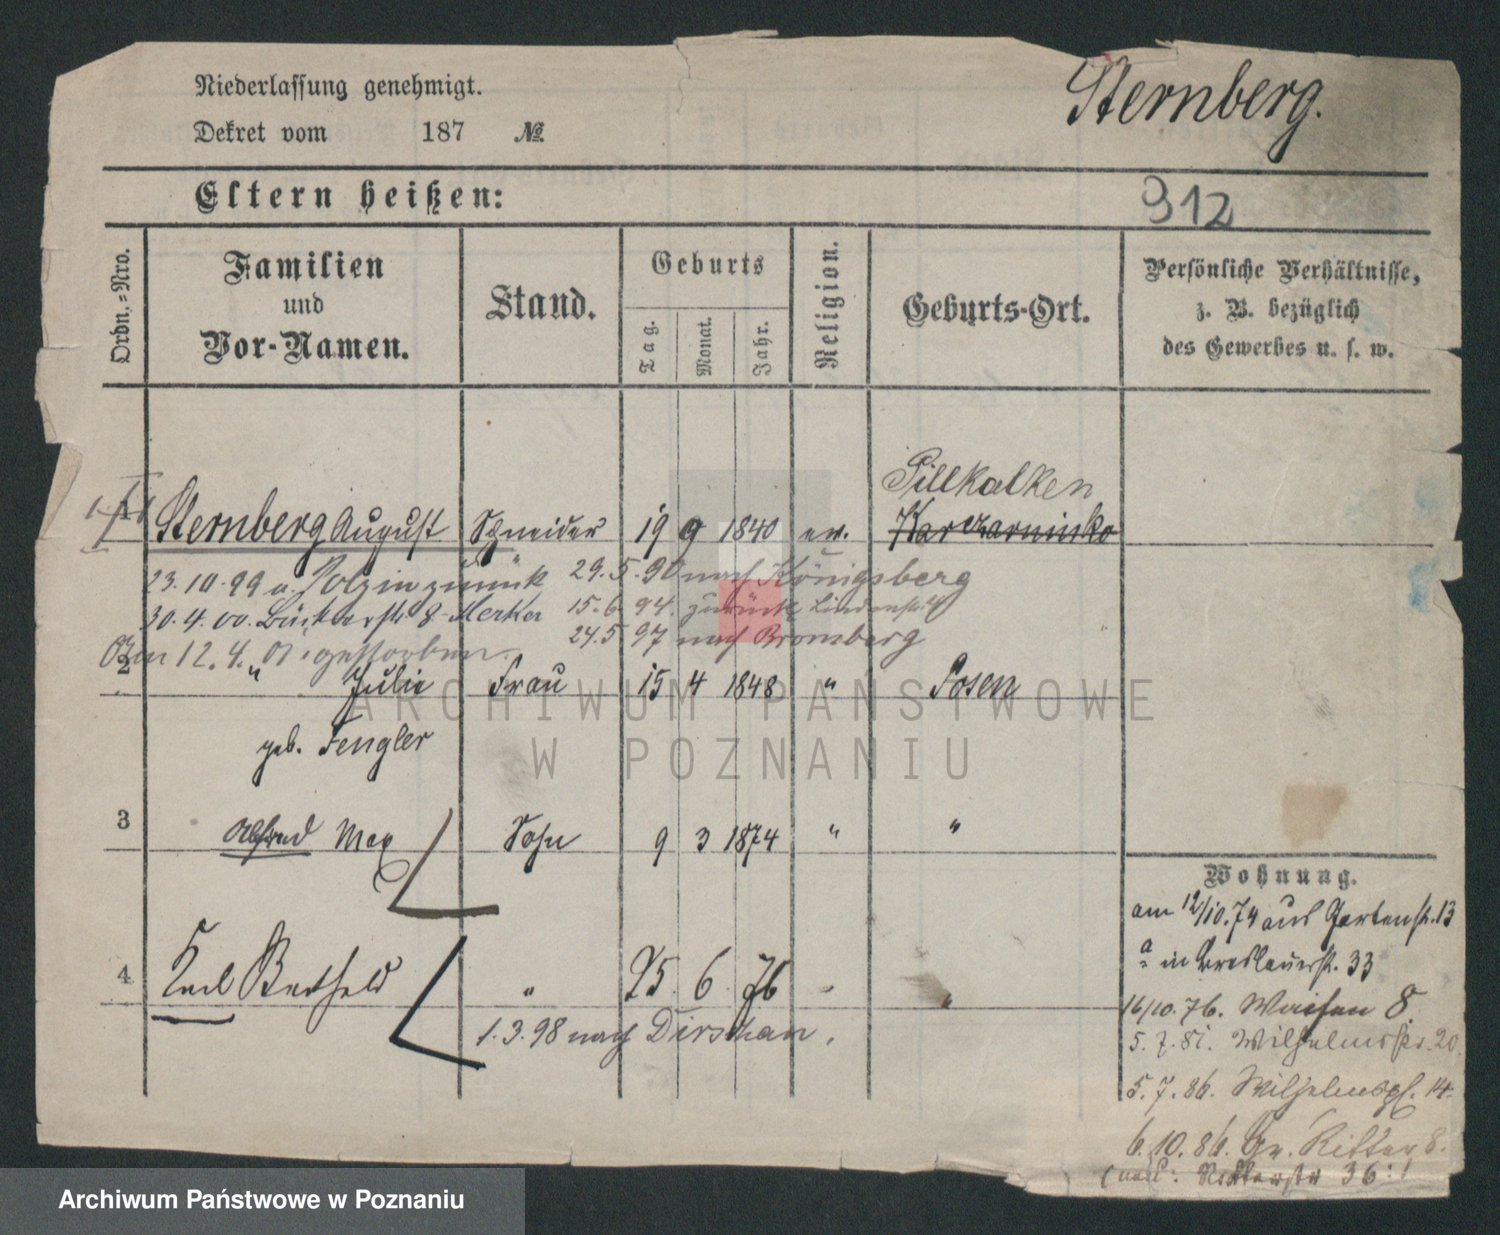 Niederlassung genehmigt.
Dekret vom 187 №
Sternberg.
Eltern heißen:
312
Ordn.=Nro.
Familien
und
Vor-Namen.
Stand.
Geburts
Tag.
Monat.
Jahr.
Religion.
Geburts-Ort.
Persönliche Verhältnisse,
z. B. bezüglich
des Gewerbes u. s. w.
Pillkalken
1 Sternberg August Schneider 19 9 1840 ev. Karczarninko
23.10.99 a. Polzin zurück 29.5.90 nach Königsberg
30.4.00. Bäckerstr. 8 Merker 15.6.94. zurück Lindenstr. 4
24.5.97 nach Bromberg
am 12.4.01. gestorben.
2 " Julie Frau 15 4 1848 " Posen
geb. Fengler
3 Alfred Max Sohn 9 3 1874 " "
4 Karl Berthold " 25 6 76 " "
1.3.98 nach Dirschau.
Wohnung.
am 12/10.74 aus Gartenstr. 13
in Breslauerstr. 33
16/10.76. Waisen 8.
5.7.81. Wilhelmstr. 20
5.7.86. Wilhelmspl. 14.
6.10.86. Gr. Ritter 8.
Ritterstr 36:)
ARCHIWUM PAŃSTWOWE
W POZNANIU
Archiwum Państwowe w Poznaniu